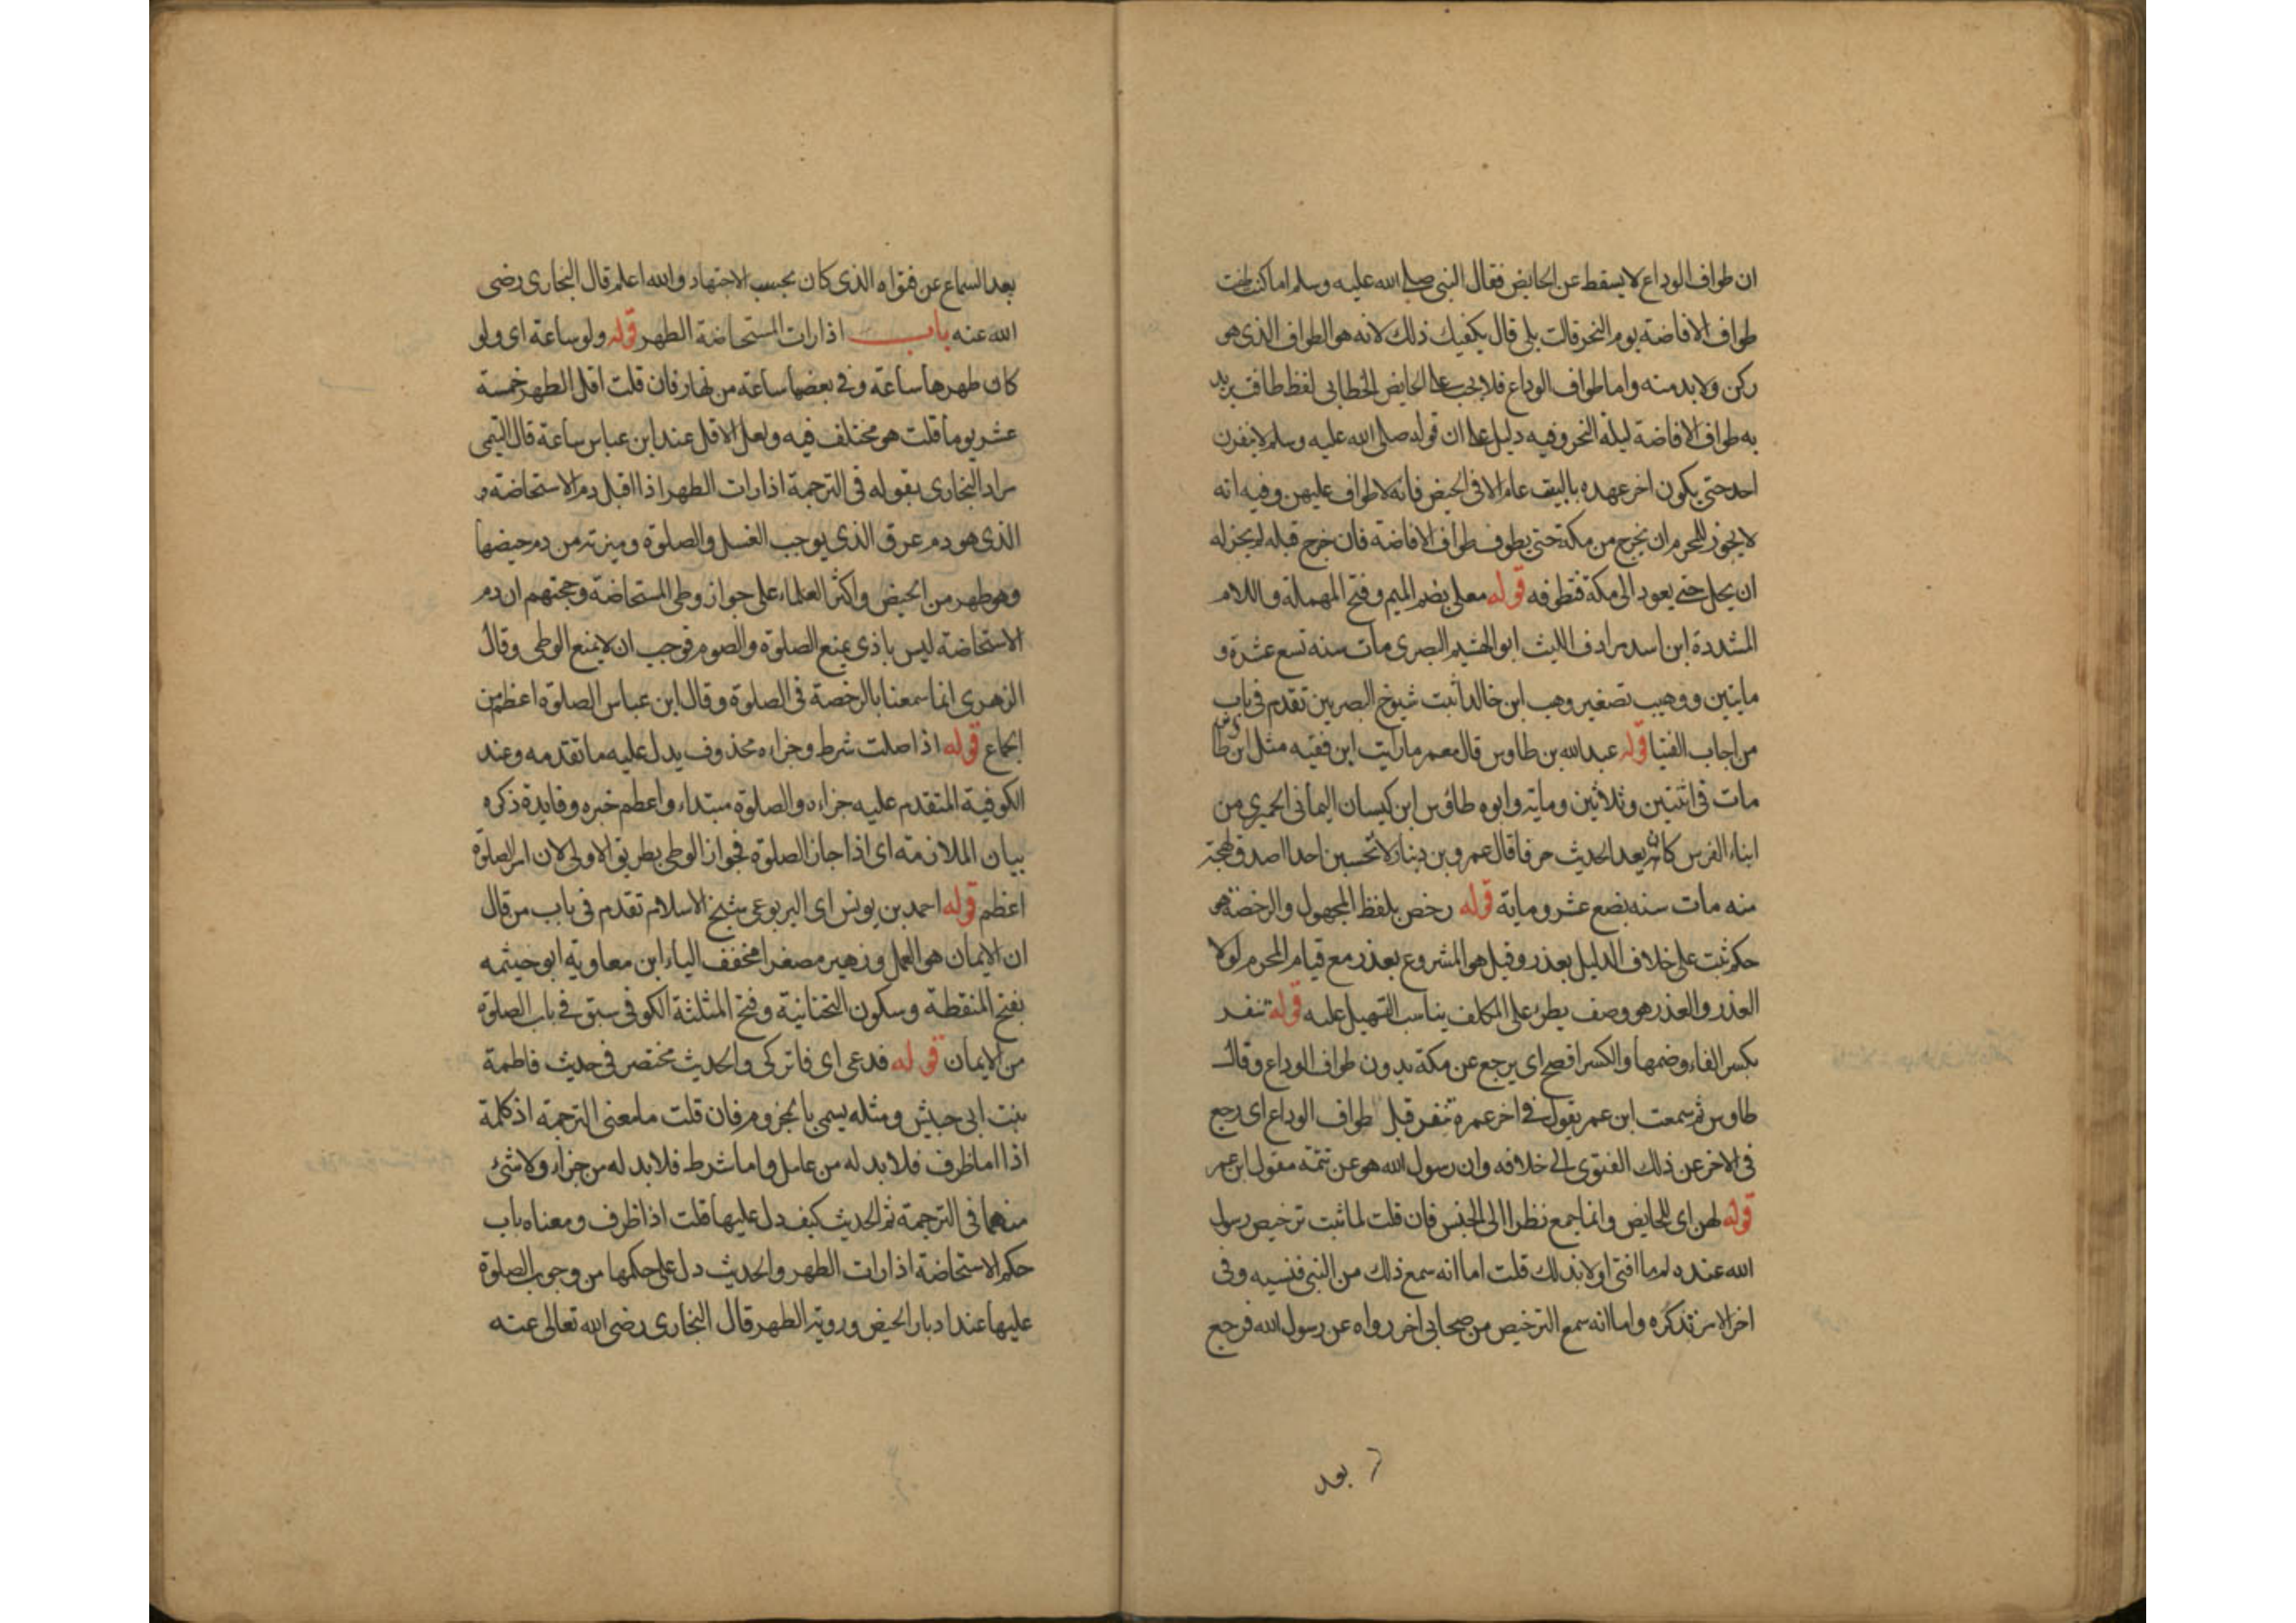 ان طواف الوداع لا يسقط عن الحايض فقال النبي صلى الله عليه وسلم اما كنت طفت
طواف الافاضة يوم النحر قالت بلى قال يكفيك ذلك لانه هو الطواف الذى هو
ركن ولا بد منه واما طواف الوداع فلا يجب على الحايض الخطابى لفظ طافت يريد
به طواف الافاضة ليلة النحر وفيه دليل على ان قوله صلى الله عليه وسلم لا ينفرن
احد حتى يكون اخر عهده بالبيت عام الا فى الحيض فانه لا طواف عليهن وفيه انه
لا يجوز للمحرم ان يخرج من مكة حتى يطوف طواف الافاضة فان خرج قبله لم يجز له
ان يحل حتى يعود الى مكة فتطوفه قوله معلى بضم الميم وفتح المهملة واللام
المشددة ابن اسد مرادف الليث ابو الهيثم البصرى مات سنه تسع عشرة و
مايتين ووهيب تصغير وهب ابن خالد اثبت شيوخ البصريين تقدم فى باب
من اجاب الفتيا قوله عبد الله بن طاوس قال معمر ما رايت ابن فقيه مثل ابن طاوس
مات فى اثنتين وثلاثين وماية وابوه طاوس ابن كيسان اليمانى الحميرى من
ابناء الفرس كان يعد الحديث حرفا قال عمرو بن دينار لا تحسبن احدا اصدق لهجة
منه مات سنه بضع عشر وماية قوله رخص بلفظ المجهول والرخصة هو
حكم ثبت على خلاف الدليل بعذر وقيل هو المشروع بعذر مع قيام المحرم لولا
العذر والعذر هو وصف يطرئ على المكلف يناسب التسهيل عليه قوله تنفر
بكسر الفاء وضمها والكسر افصح اى يرجع عن مكة بدون طواف الوداع وقال
طاوس ثم سمعت ابن عمر يقول فى اخر عمره تنفر قبل طواف الوداع اى رجع
فى الاخر عن ذلك الفتوى الى خلافه وان رسول الله هو عن تتمة مقول ابن عمر
قوله لهن اى للحايض وانما جمع نظرا الى الجنس فان قلت لما ثبت ترخيص رسول
الله عنده لم ما افتى اولا بذلك قلت اما انه سمع ذلك من النبى فنسيه وفى
اخر الامر تذكره واما انه سمع الترخيص من صحابى اخر رواه عن رسول الله فرجع
بعد
بعد السماع عن فتواه الذى كان بحسب الاجتهاد والله اعلم قال البخارى رضى
الله عنه باب اذا رات المستحاضة الطهر قوله ولو ساعة اى ولو
كان طهرها ساعة وفى بعضها ساعة من نهار فان قلت اقل الطهر خمسة
عشر يوما قلت هو مختلف فيه ولعل الاقل عند ابن عباس ساعة قال التيمى
مراد البخارى بقوله فى الترجمة اذا رات الطهر اذا اقبل دم الاستحاضة و
الذى هو دم عرق الذى يوجب الغسل والصلوة وميزته من دم حيضها
وهو طهر من الحيض واكثر العلماء على جواز وطى المستحاضة وحجتهم ان دم
الاستحاضة ليس باذى يمنع الصلوة والصوم فوجب ان لا يمنع الوطى وقال
الزهرى انما سمعنا بالرخصة فى الصلوة وقال ابن عباس الصلوة اعظم من
الجماع قوله اذا صلت شرط وجزاه محذوف يدل عليه ما تقدمه وعند
الكوفية المتقدم عليه جزاءه والصلوة مبتداء واعظم خبره وفايدة ذكره
بيان الملازمة اى اذا جاز الصلوة فجواز الوطى بطريق الاولى لان امر الصلوة
اعظم قوله احمد بن يونس اى اليربوعى شيخ الاسلام تقدم فى باب من قال
ان الايمان هو العمل وزهير مصغرا مخفف الياء ابن معاوية ابو خيثمه
بفتح المنقطة وسكون التحتانية وفتح المثلثة الكوفى سبق فى باب الصلوة
من الايمان قوله فدعى اى فاتركى والحديث مختصر فى حديث فاطمة
بنت ابى حبيش ومثله يسمى بالمخزوم فان قلت ما معنى الترجمة اذ كلمة
اذا اما ظرف فلا بد له من عامل واما شرط فلا بد له من جزاء ولا شئ
منهما فى الترجمة ثم الحديث كيف دل عليها قلت اذا ظرف ومعناه باب
حكم الاستحاضة اذا رات الطهر والحديث دل على حكمها من وجوب الصلوة
عليها عند ادبار الحيض وروية الطهر قال البخارى رضى الله تعالى عنه